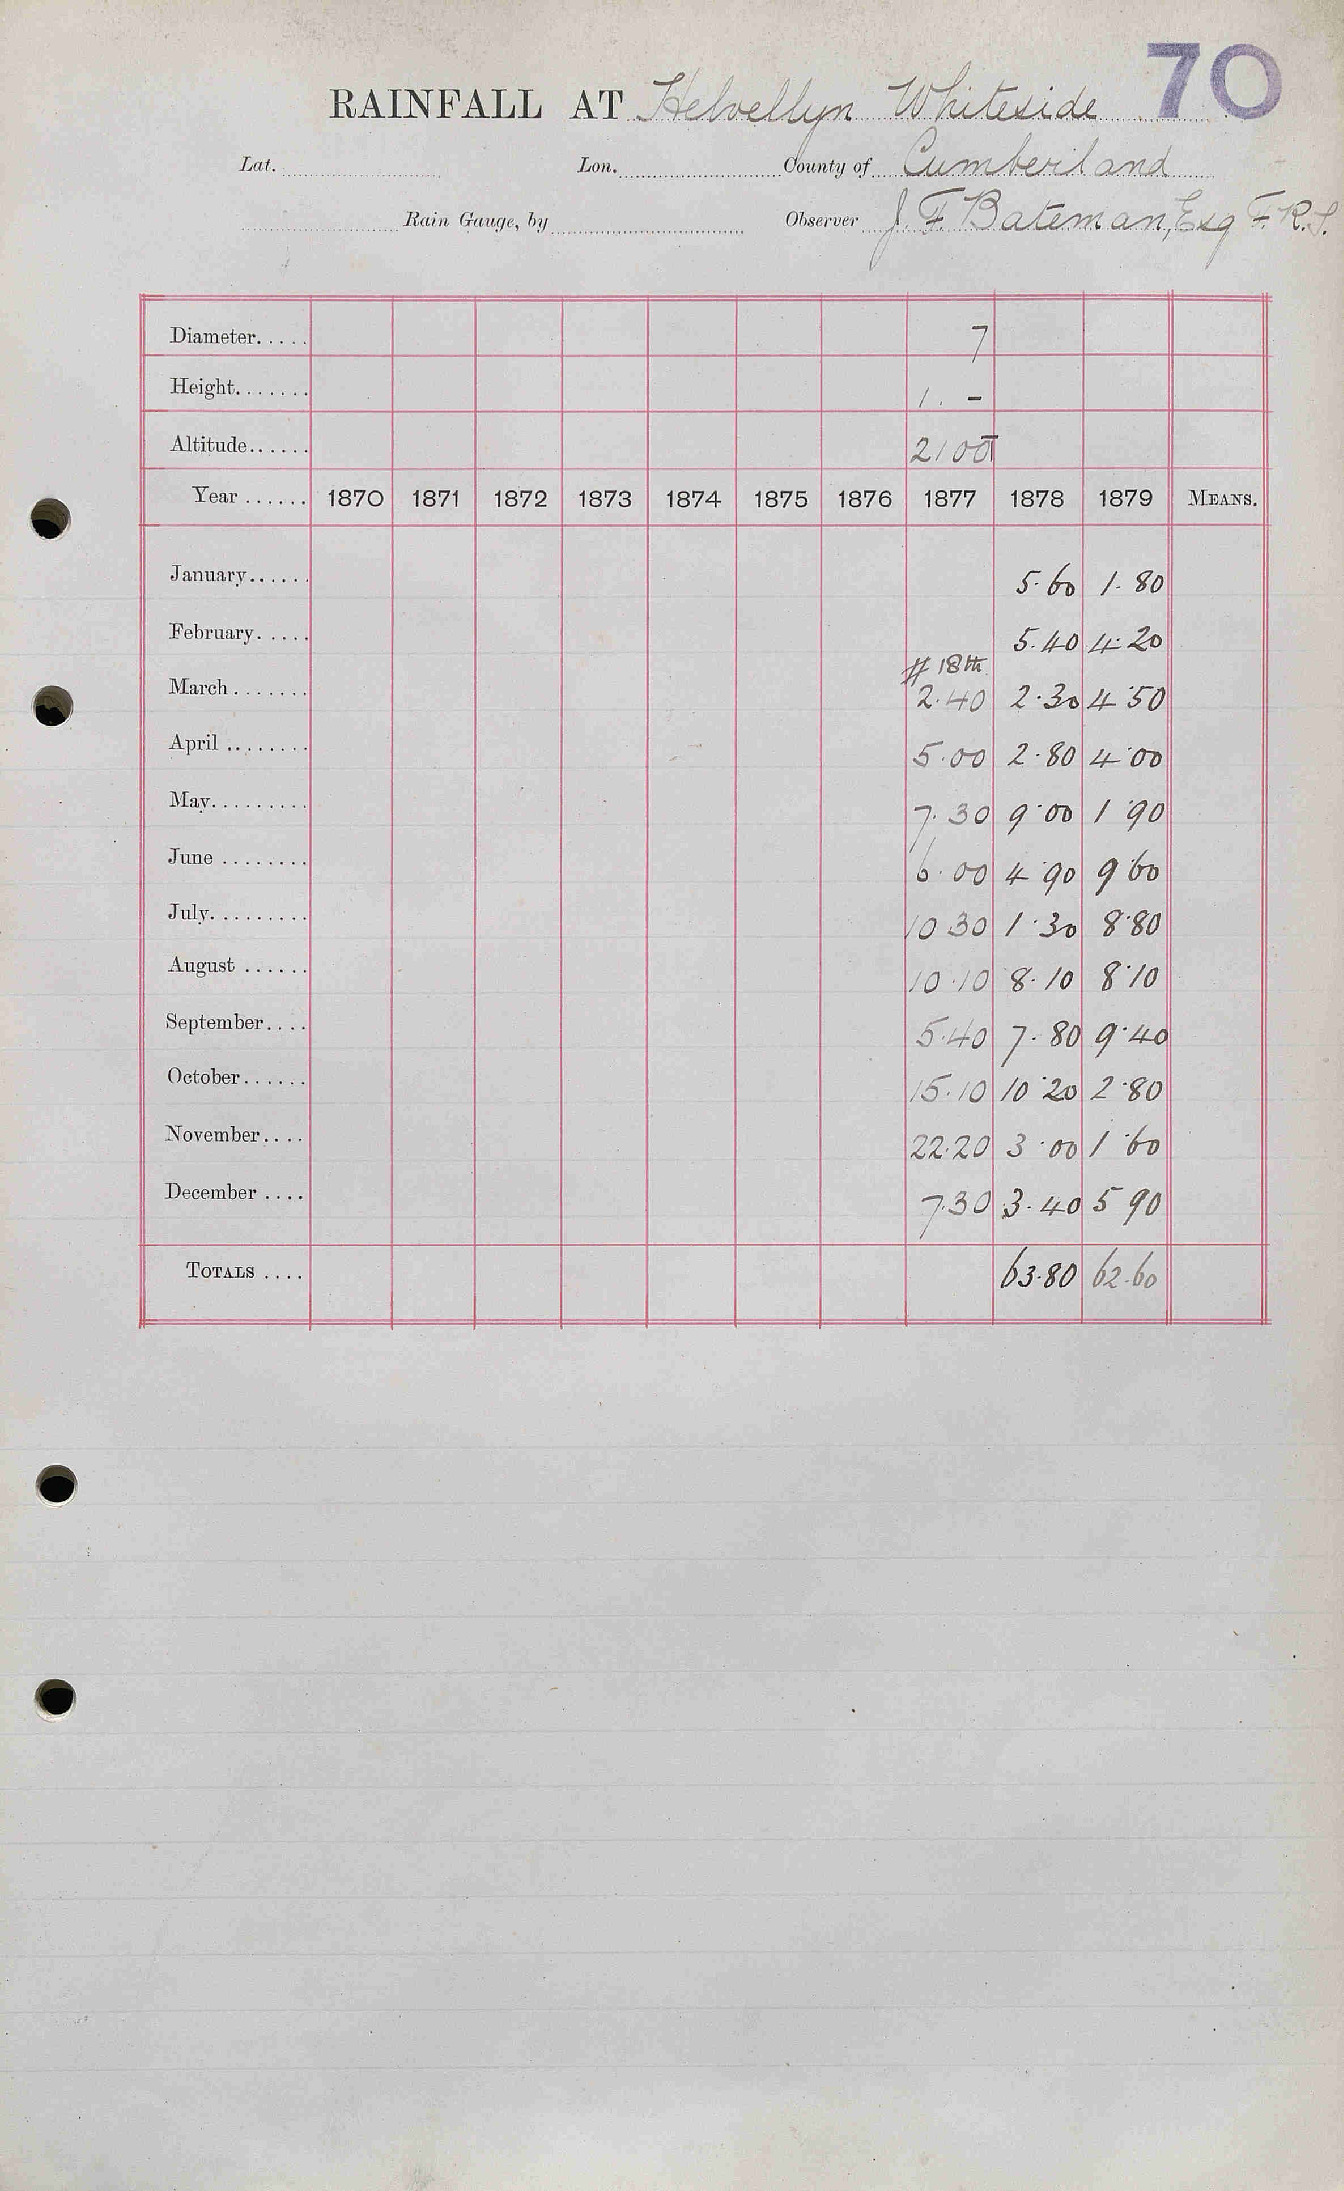 70
RAINFALL AT Helvellyn Whiteside
Lat. Lon. County of Cumberland
Rain Gauge, by Observer J. F. Bateman, Esq F.R.S.
Diameter..... 7
Height....... 1. -
Altitude...... 2100 T
Year ...... 1870 1871 1872 1873 1874 1875 1876 1877 1878 1879 MEANS.
January...... 5.60 1.80
February..... 5.40 4.20
# 18th
March ....... 2.40 2.30 4.50
April ........ 5.00 2.80 4.00
May......... 7.30 9.00 1.90
June ........ 6.00 4.90 9.60
July......... 10.30 1.30 8.80
August ...... 10.10 8.10 8.10
September.... 5.40 7.80 9.40
October...... 15.10 10.20 2.80
November.... 22.20 3.00 1.60
December .... 7.30 3.40 5 90
TOTALS .... 63.80 62.60